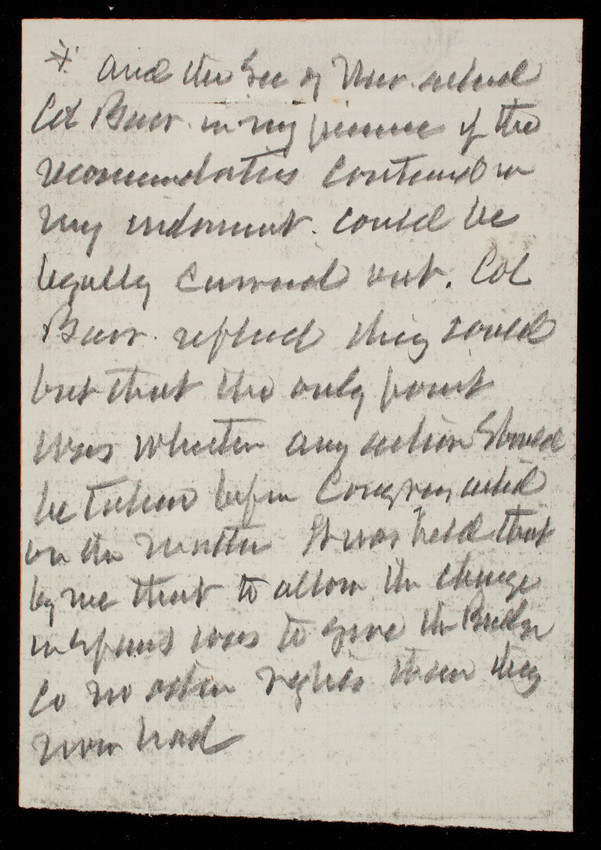 * and the Sec of War asked
Col Barr in my presence if the
recommendations contained in
my indorsement could be
legally carried out. Col
Barr replied they could
but that the only point
was whether any action should
be taken before Congress acted
on the matter It was held that
by me that to allow the change
in spans was to give the Bridge
Co no other rights than they
now had